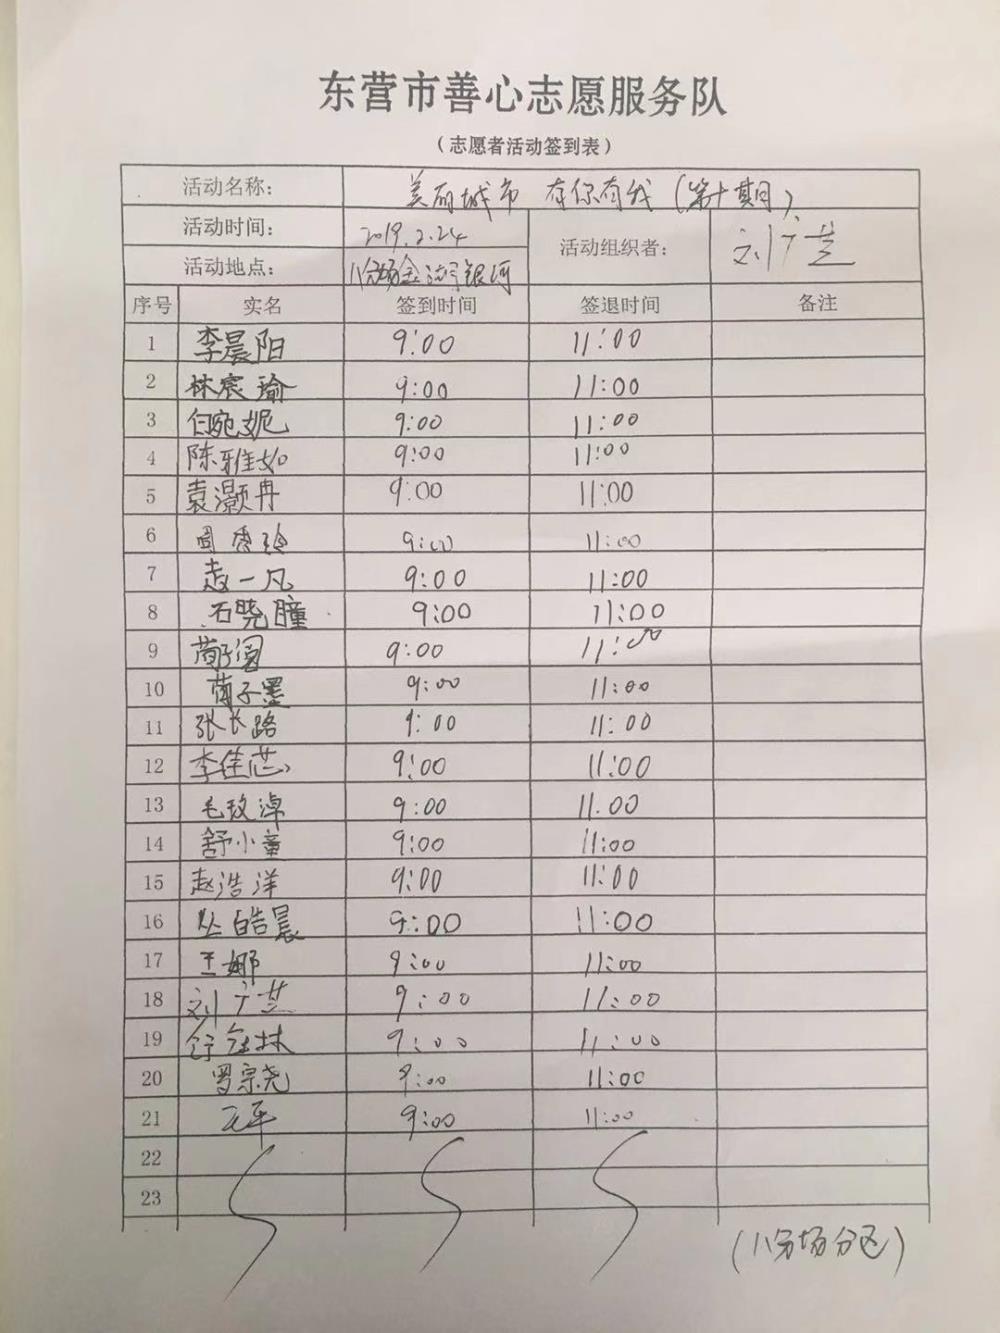 东营市善心志愿服务队
（志愿者活动签到表）
活动名称： 美丽城市 有你有我（第十期）
活动时间： 2019.2.24 活动组织者： 刘广芝
活动地点： 八分场金 银河
序号 实名 签到时间 签退时间 备注
1 李晨阳 9:00 11:00
2 林宸瑜 9:00 11:00
3 白宛妮 9:00 11:00
4 陈雅如 9:00 11:00
5 袁灏冉 9:00 11:00
6 周秀玲 9:00 11:00
7 赵一凡 9:00 11:00
8 石晓瞳 9:00 11:00
9 蔺子阁 9:00 11:00
10 蔺子墨 9:00 11:00
11 张长路 9:00 11:00
12 李佳芯 9:00 11:00
13 毛玫淖 9:00 11.00
14 舒小童 9:00 11:00
15 赵浩洋 9:00 11:00
16 丛皓晨 9:00 11:00
17 王娜 9:00 11:00
18 刘广芝 9:00 11:00
19 林 9:00 11:00
20 罗宗尧 9:00 11:00
21 9:00 11:00
22
23
（八分场分区）